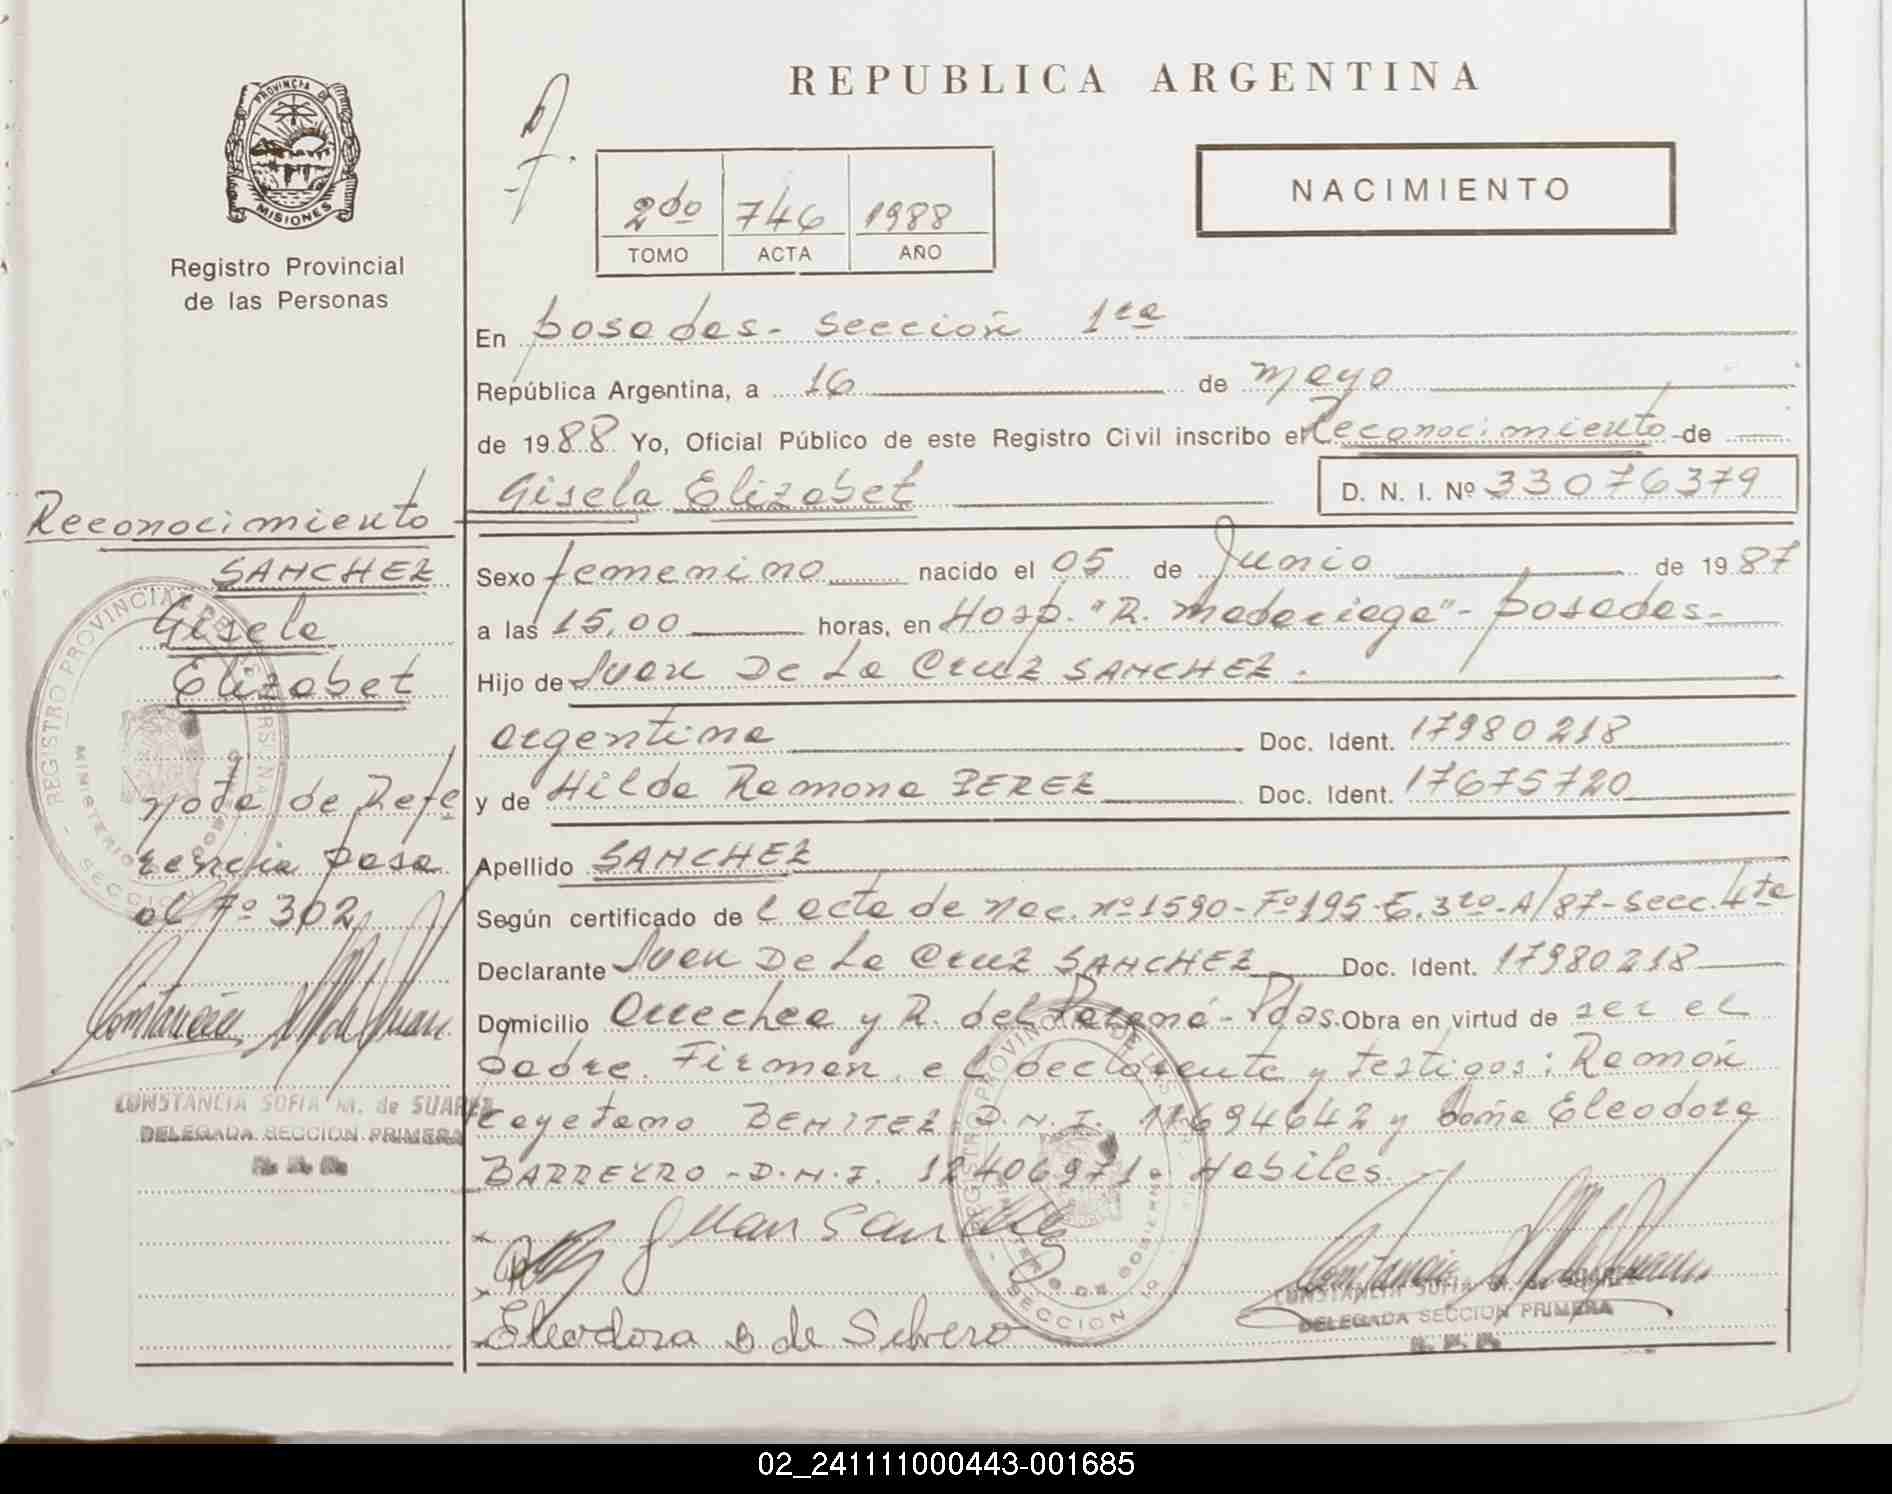 PROVINCIA DE
MISIONES
Registro Provincial
de las Personas
Reconocimiento
SANCHEZ
Gisela
Elizabet
nota de Refe
rencia pasa
al Fº 302
CONSTANCIA SOFIA M. de SUAREZ
DELEGADA SECCION PRIMERA
REPUBLICA ARGENTINA
NACIMIENTO
2do 746 1988
TOMO ACTA AÑO
En posadas - Sección 1ra
República Argentina, a 16 de mayo
de 1988 Yo, Oficial Público de este Registro Civil inscribo el Reconocimiento de
Gisela Elizabet D. N. I. Nº 33076379
Sexo femenino nacido el 05 de Junio de 1987
a las 15,00 horas, en Hosp. "R. Madariaga" - posadas -
Hijo de Juan De La Cruz SANCHEZ.
argentina Doc. Ident. 17980218
y de Hilda Ramona PEREZ Doc. Ident. 17675720
Apellido SANCHEZ
Según certificado de l acta de nac. nº 1590 - Fº 195 - T. 3ro - A/87 - Secc. 4ta
Declarante Juan De La Cruz SANCHEZ Doc. Ident. 17980218
Domicilio y R. del Paraná - Pdas. Obra en virtud de ser el
padre. Firman el declarante y testigos: Ramón
Cayetano BENITEZ D.N.I. 11694642 y doña Eleodora
BARREYRO - D.N.I. 12406971. Habiles.
Juan Sanchez
Eleodora B de Silvero
CONSTANCIA SOFIA M. de SUAREZ
DELEGADA SECCION PRIMERA
02_241111000443-001685